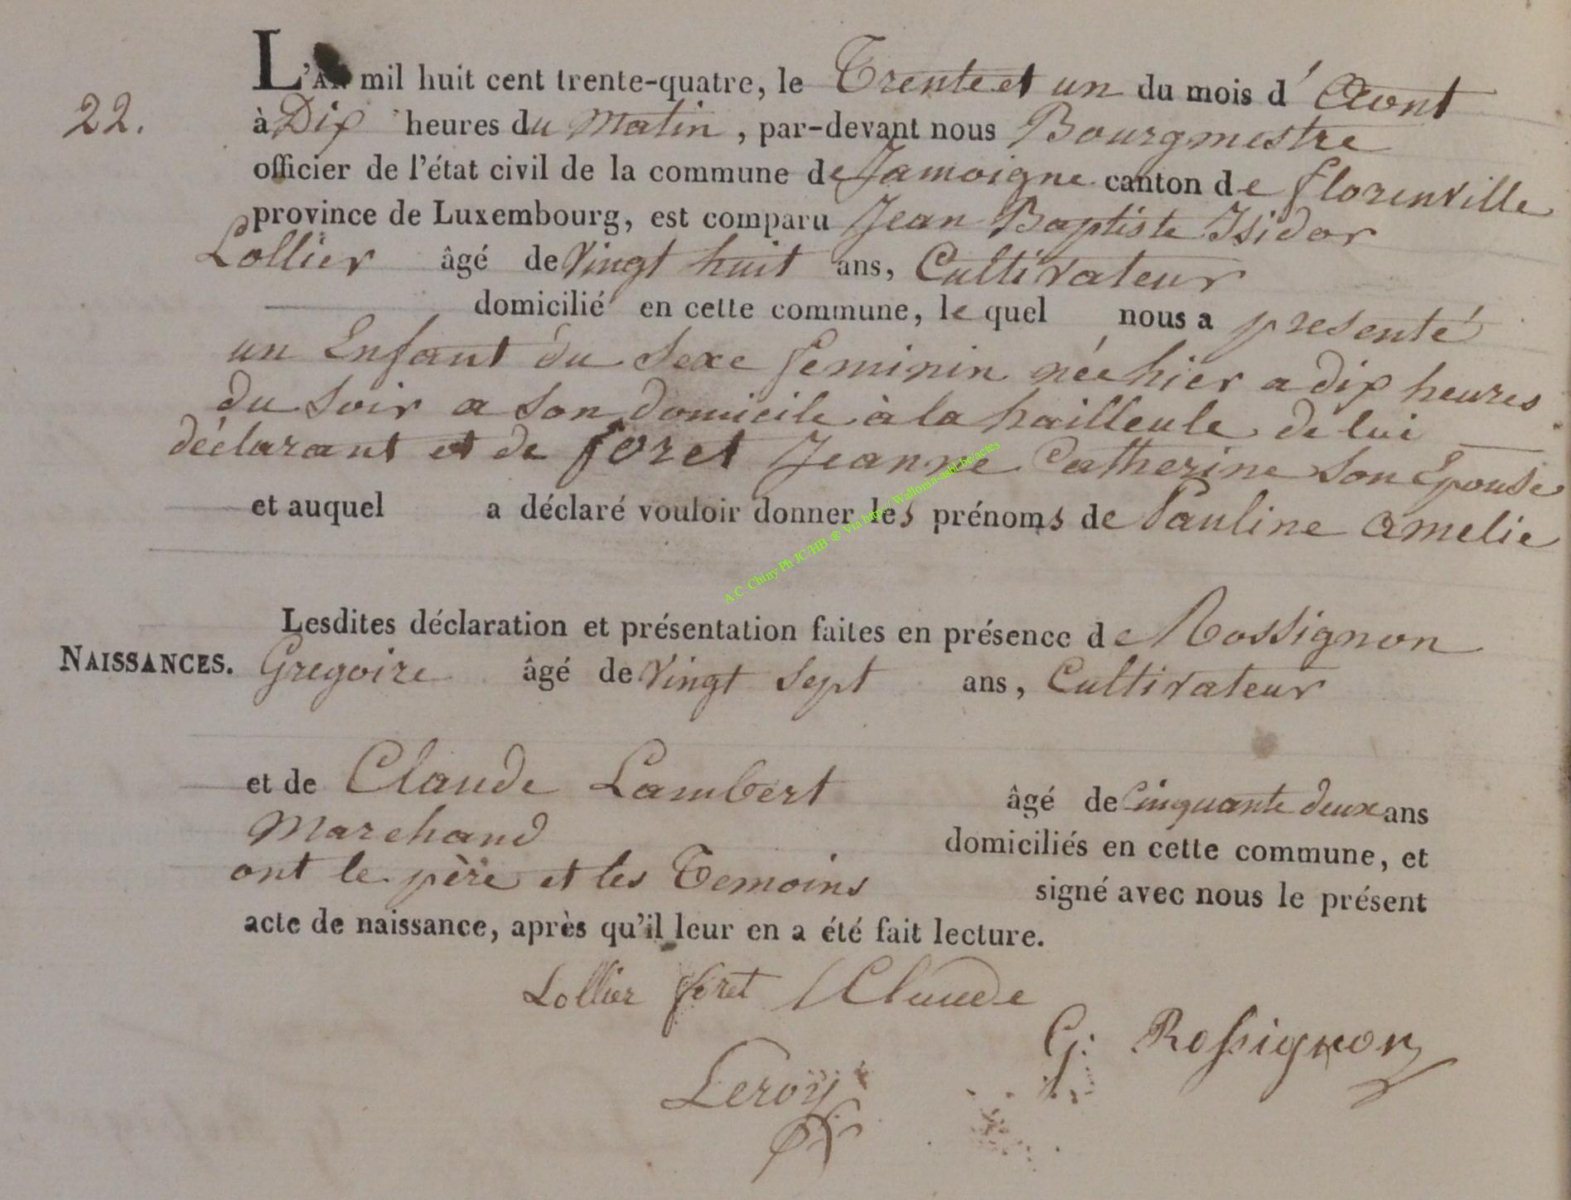 22.
L'AN mil huit cent trente-quatre, le Trente et un du mois d' Aout
à Dix heures du Matin, par-devant nous Bourgmestre
officier de l'état civil de la commune de Jamoigne canton de florenville
province de Luxembourg, est comparu Jean Baptiste Isidor
Lollier âgé de Vingt huit ans, Cultivateur
domicilié en cette commune, le quel nous a presenté
un Enfant du Sexe feminin née hier a dix heures
du Soir a son domicile à la hailleule de lui
déclarant et de foret Jeanne Catherine son Epouse
et auquel a déclaré vouloir donner les prénoms de Pauline amelie
A.C. Chiny Ph JC HB ® via
Lesdites déclaration et présentation faites en présence de Rossignon
NAISSANCES. Gregoire âgé de Vingt Sept ans, Cultivateur
et de Claude Lambert âgé de Cinquante deux ans
Marchand domiciliés en cette commune, et
ont le père et les Temoins signé avec nous le présent
acte de naissance, après qu'il leur en a été fait lecture.
Lollier foret L Claude
G: Rossignon
Leroy